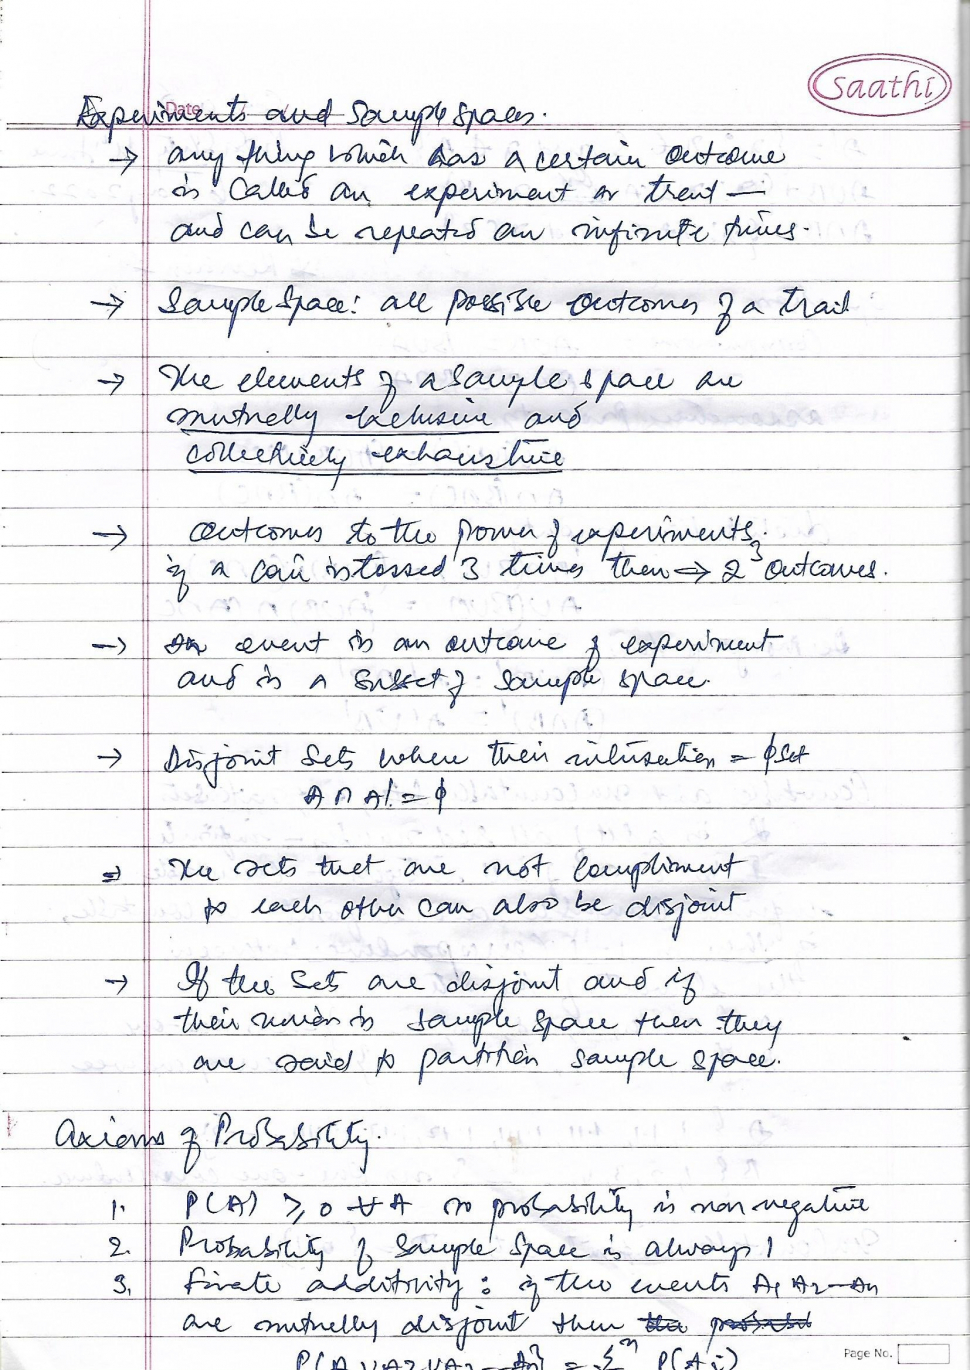 Saathi
Date
Experiments and Sample Spaces.
→ any thing which has a certain outcome
is called an experiment or trail —
and can be repeated an infinite times.
→ Sample Space: all possible outcomes of a trail
→ The elements of a sample space are
mutually exclusive and
collectively exhaustive
→ outcomes to the power of experiments.
if a coin is tossed 3 times then ⇒ 2³ outcomes.
→ An event is an outcome of experiment
and is a subset of sample space.
→ Disjoint Sets where their intersection = ϕ set
A ∩ A' = ϕ
⇒ The sets that are not compliment
to each other can also be disjoint
→ If the sets are disjoint and if
their union is sample space then they
are said to partition sample space.
Axioms of Probability.
1. P(A) ≥ 0 ∀ A so probability is non negative
2. Probability of Sample Space is always 1
3. Finate additivity: if the events A1 A2 — An
are mutually disjoint then
P(A1 ∪ A2 ∪ A3 — An) = Σ n P(Ai)
Page No.